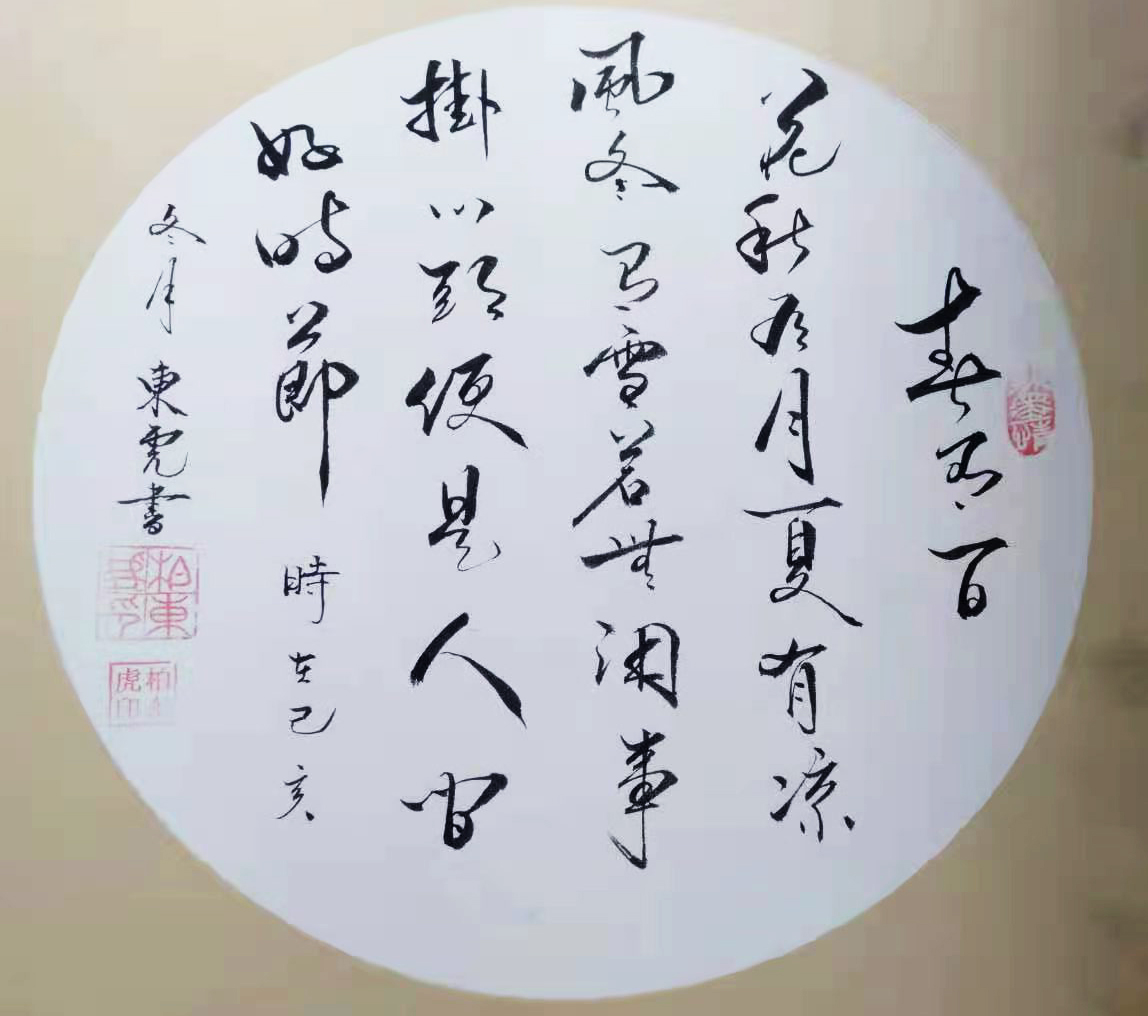 春有百
花秋有月夏有凉
風冬有雪若無閑事
掛心頭便是人間
好時節 時在己亥
冬月 東虎書
柏東虎印